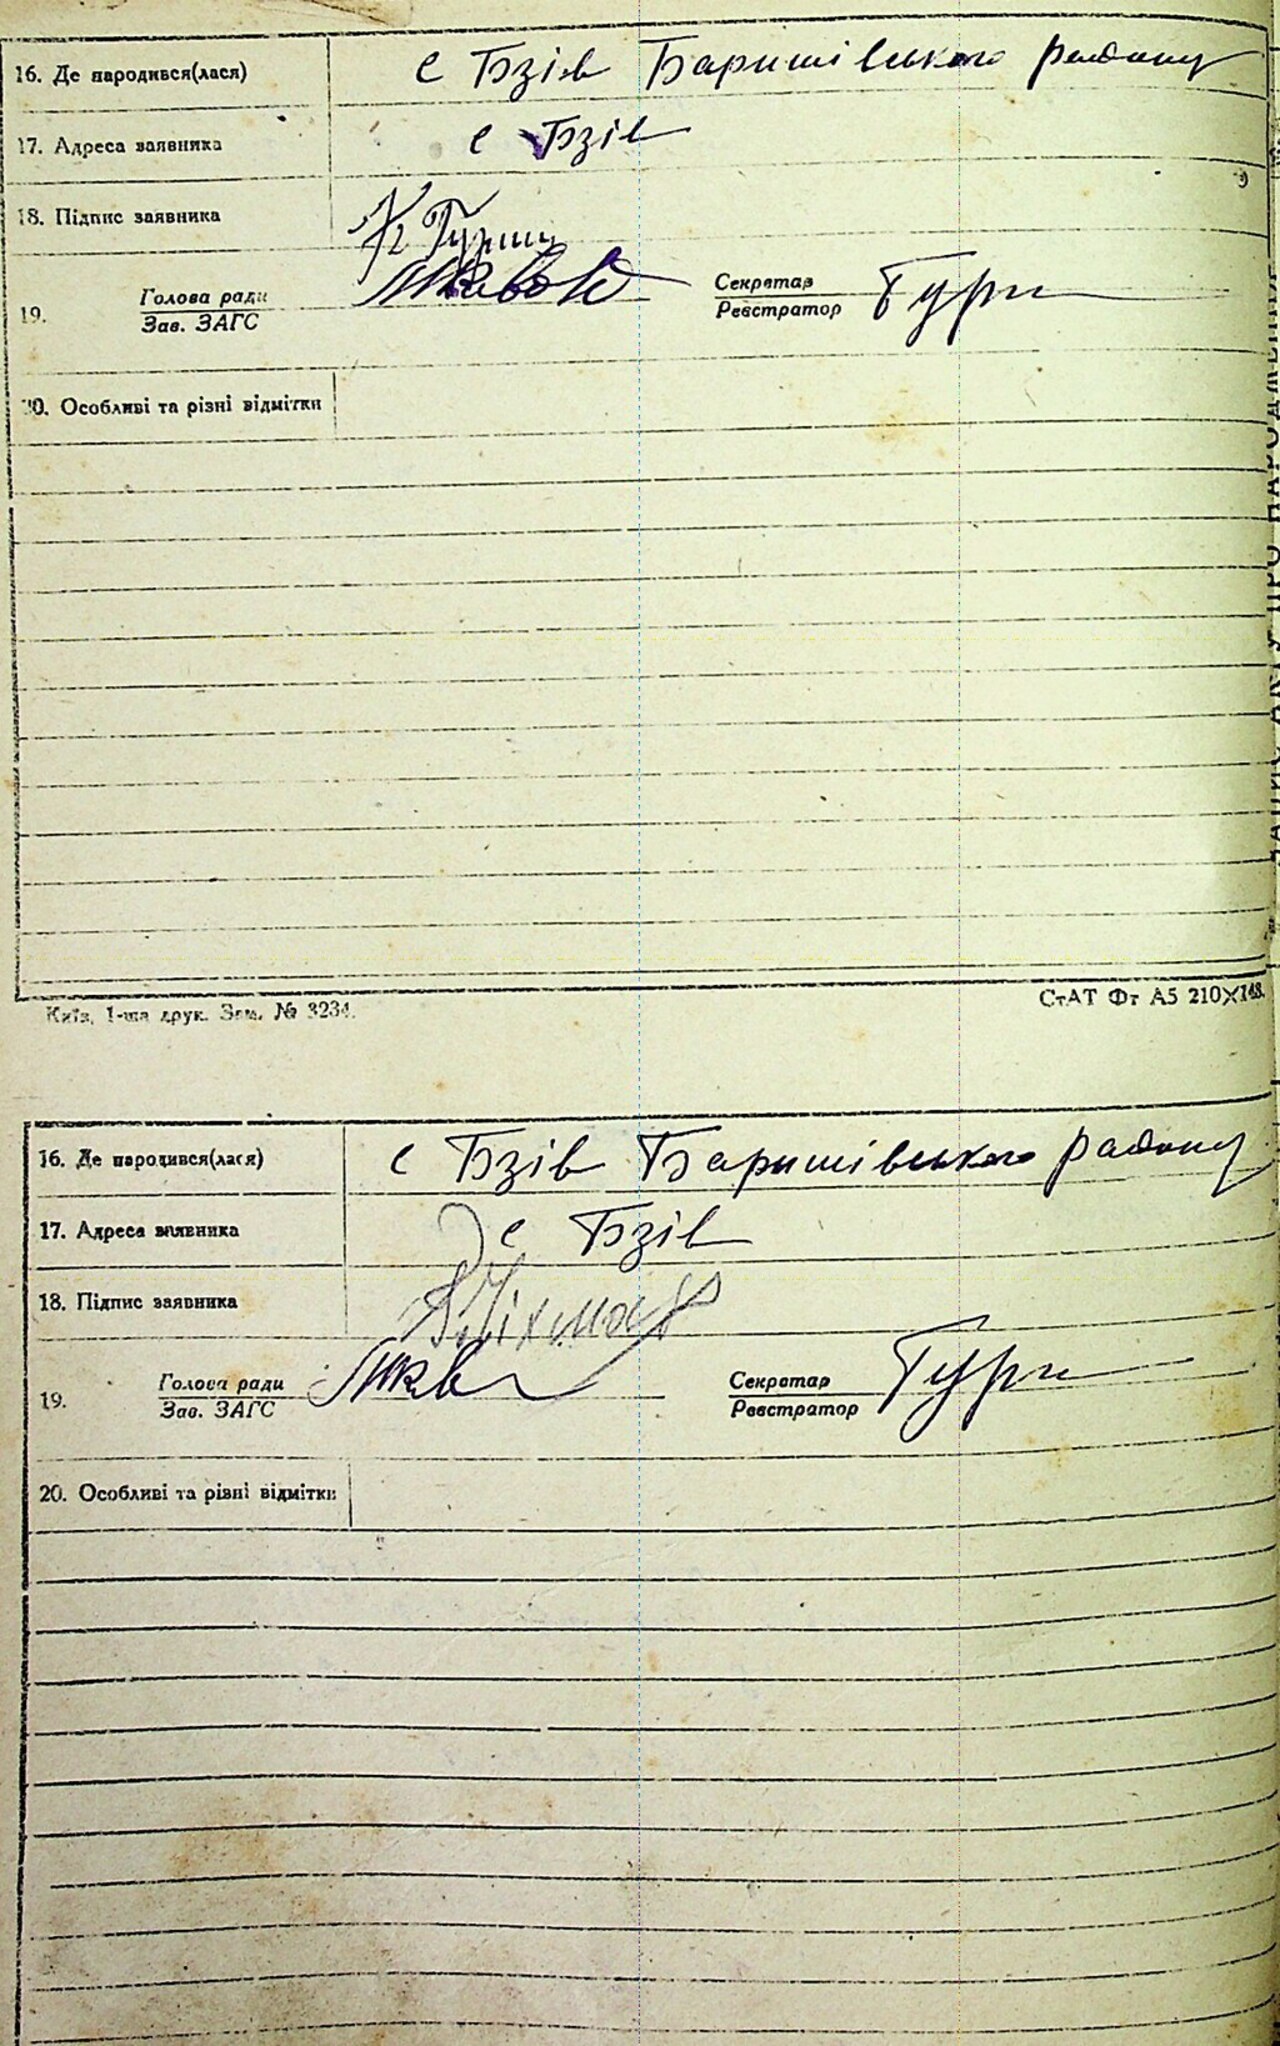 16. Де народився(лася) с Бзів Баришівського району
17. Адреса заявника с Бзів
18. Підпис заявника
19. Голова ради
Зав. ЗАГС
Секретар
Реєстратор Гури
20. Особливі та різні відмітки
Київ, 1-ша друк. Зам. № 3234.
СтАТ Фт А5 210×148.
16. Де народився(лася) с Бзів Баришівського району
17. Адреса заявника с Бзів
18. Підпис заявника
19. Голова ради
Зав. ЗАГС
Секретар
Реєстратор Гури
20. Особливі та різні відмітки